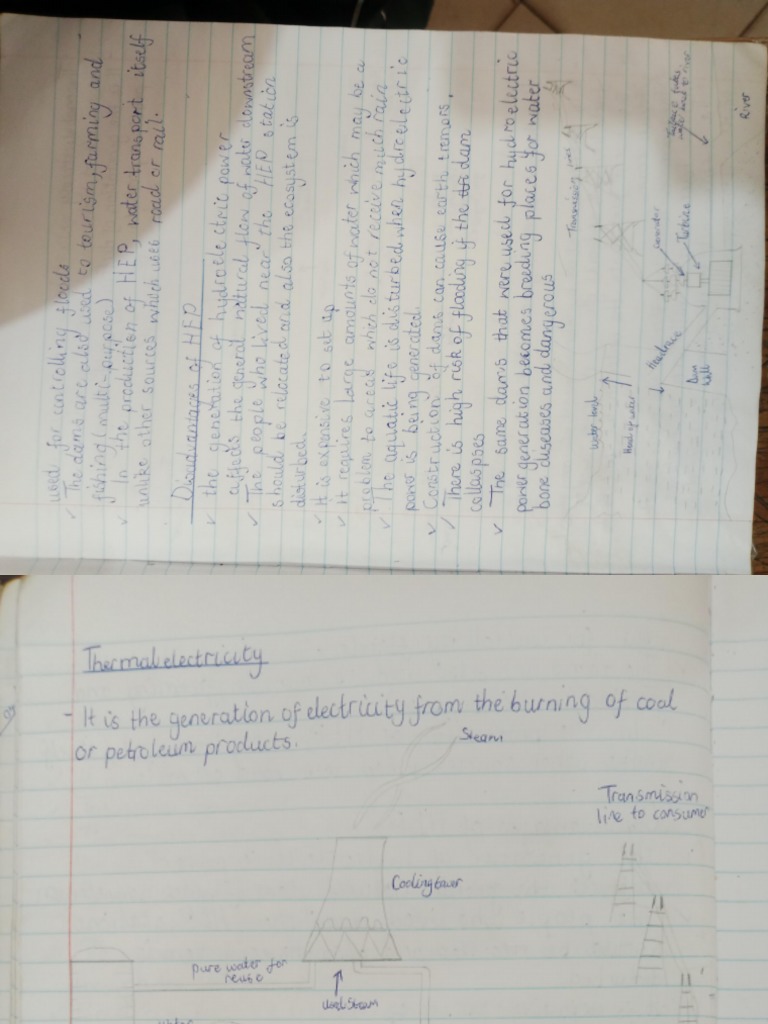 used for controlling floods
✓ The dams are also used to tourism, farming and
fishing (multi-purpose)
✓ In the production of HEP, water transport itself
unlike other sources which uses road or rail.
Disadvantages of HEP
✓ the generation of hydroelectric power
affects the general natural flow of water downstream
✓ The people who lived near the HEP station
should be relocated and also the ecosystem is
disturbed.
✓ It is expensive to set up
✓ It requires large amounts of water which may be a
problem to areas which do not receive much rain
✓ The aquatic life is disturbed when hydroelectric
power is being generated.
✓ Construction of dams can cause earth tremors.
✓ There is high risk of flooding if the dam
collaspses
✓ The same dams that were used for hydroelectric
power generation becomes breeding places for water
bone diseases and dangerous
Transmission lines
Water level
Head of water
Headrace
Dam
wall
Generator
Turbine
River
Thermal electricity
- It is the generation of electricity from the burning of coal
or petroleum products.
Steam
Transmission
line to consumer
Cooling tower
pure water for
reuse
Used Steam
water